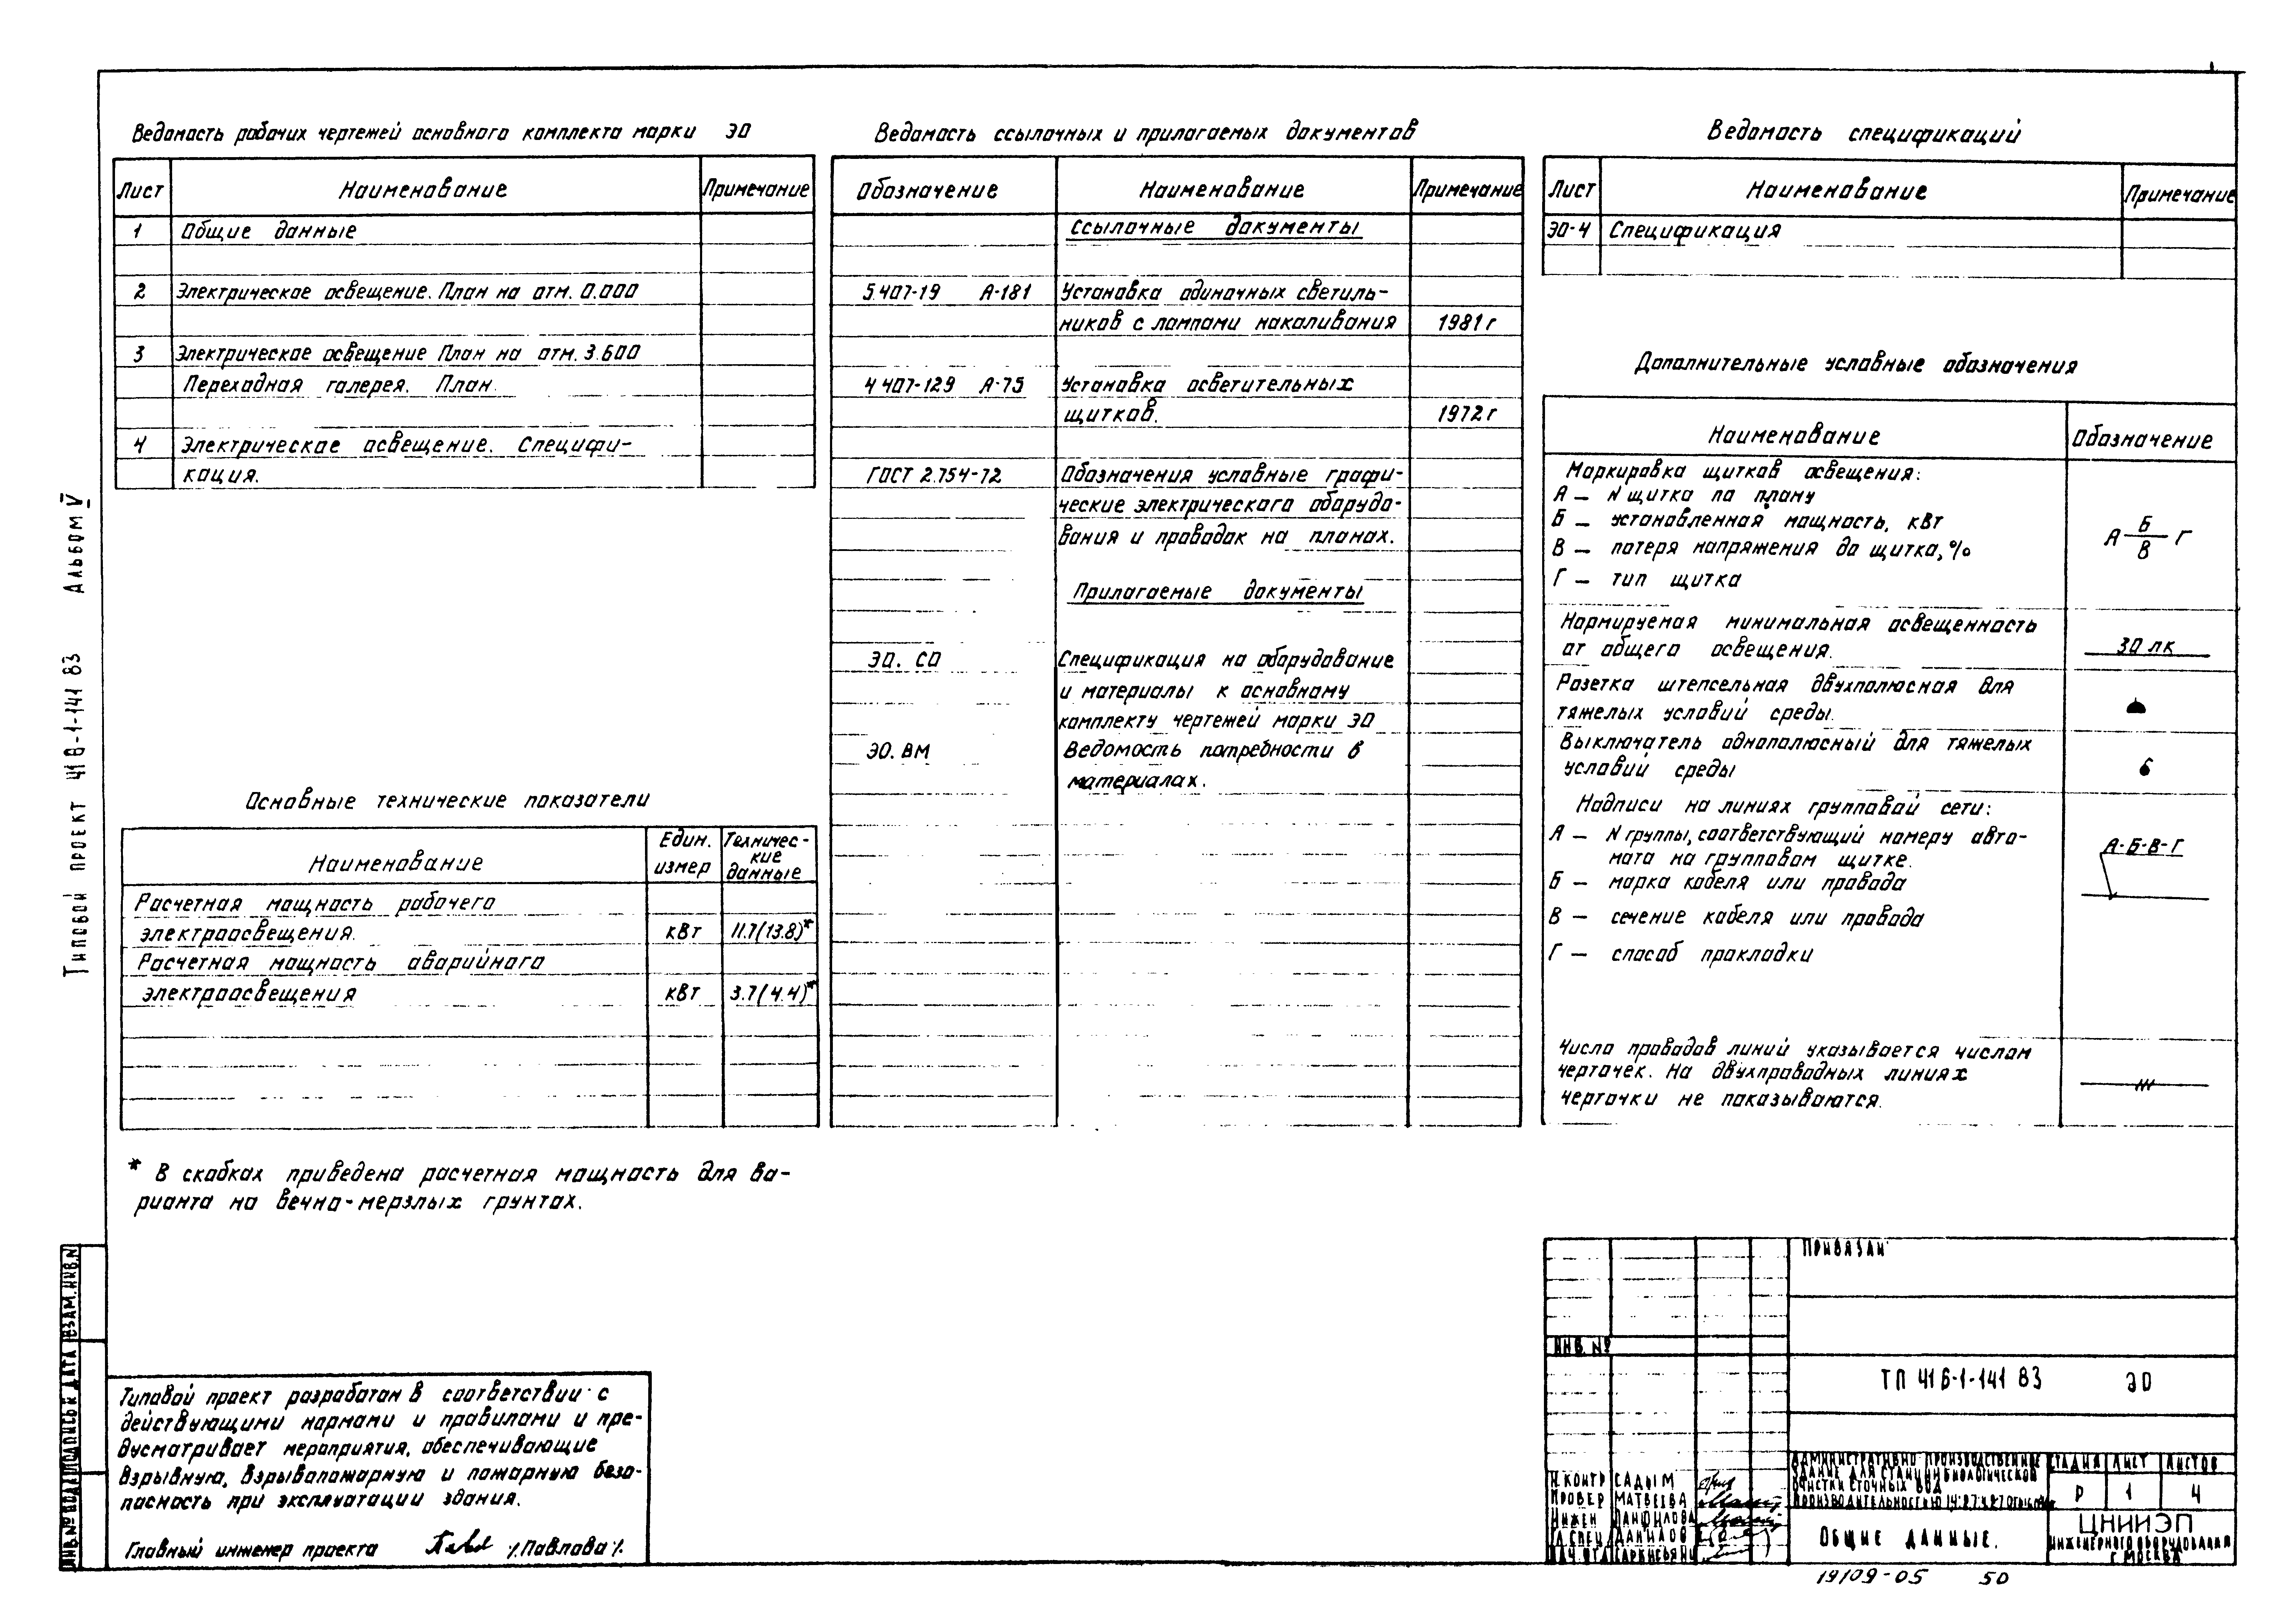 Ведомость рабочих чертежей основного комплекта марки ЭО
Лист Наименование Примечание
1 Общие данные
2 Электрическое освещение. План на отм. 0.000
3 Электрическое освещение План на отм. 3.600
Переходная галерея. План.
4 Электрическое освещение. Специфи-
кация.
Основные технические показатели
Наименование Един. измер Техничес-
кие
данные
Расчетная мощность рабочего
электроосвещения. кВт 11.7(13.8)*
Расчетная мощность аварийного
электроосвещения кВт 3.7(4.4)*
* В скобках приведена расчетная мощность для ва-
рианта на вечно-мерзлых грунтах.
Ведомость ссылочных и прилагаемых документов
Обозначение Наименование Примечание
Ссылочные документы
5.407-19 А-181 Установка одиночных светиль-
ников с лампами накаливания 1981г
4 407-129 А-75 Установка осветительных
щитков. 1972г
ГОСТ 2.754-72 Обозначения условные графи-
ческие электрического оборудо-
вания и проводок на планах.
Прилагаемые документы
ЭО. СО Спецификация на оборудование
и материалы к основному
комплекту чертежей марки ЭО
ЭО. ВМ Ведомость потребности в
материалах.
Ведомость спецификаций
Лист Наименование Примечание
ЭО-4 Спецификация
Дополнительные условные обозначения
Наименование Обозначение
Маркировка щитков освещения:
А — N щитка по плану
Б — установленная мощность, кВт
В — потеря напряжения до щитка, %
Г — тип щитка
А Б/В Г
Нормируемая минимальная освещенность
от общего освещения. 30 лк
Розетка штепсельная двухполюсная для
тяжелых условий среды.
Выключатель однополюсный для тяжелых
условий среды
Надписи на линиях групповой сети:
А — N группы, соответствующий номеру авто-
мата на групповом щитке.
Б — марка кабеля или провода
В — сечение кабеля или провода
Г — способ прокладки
А-Б-В-Г
Число проводов линий указывается числом
черточек. На двухпроводных линиях
черточки не показываются.
Типовой проект 416-1-141 83 Альбом V
ИНВ.№ ПОДЛ ПОДПИСЬ И ДАТА ВЗАМ.ИНВ.N
Типовой проект разработан в соответствии с
действующими нормами и правилами и пре-
дусматривает мероприятия, обеспечивающие
взрывную, взрывопожарную и пожарную безо-
пасность при эксплуатации здания.
Главный инженер проекта /Павлова/.
ПРИВЯЗАН
ИНВ. №
ТП 416-1-141 83 ЭО
Н КОНТР САДЫМ
ПРОВЕР МАТВЕЕВА
ИНЖЕН ПАНФИЛОВА
ГЛ СПЕЦ ДАНИЛОВ
АДМИНИСТРАТИВНО ПРОИЗВОДСТВЕННОЕ
ЗДАНИЕ ДЛЯ СТАНЦИИ БИОЛОГИЧЕСКОЙ
ОЧИСТКИ СТОЧНЫХ ВОД
ПРОИЗВОДИТЕЛЬНОСТЬЮ
СТАДИЯ ЛИСТ ЛИСТОВ
Р 1 4
ОБЩИЕ ДАННЫЕ.
ЦНИИЭП
ИНЖЕНЕРНОГО ОБОРУДОВАНИЯ
Г. МОСКВА
19109-05 50